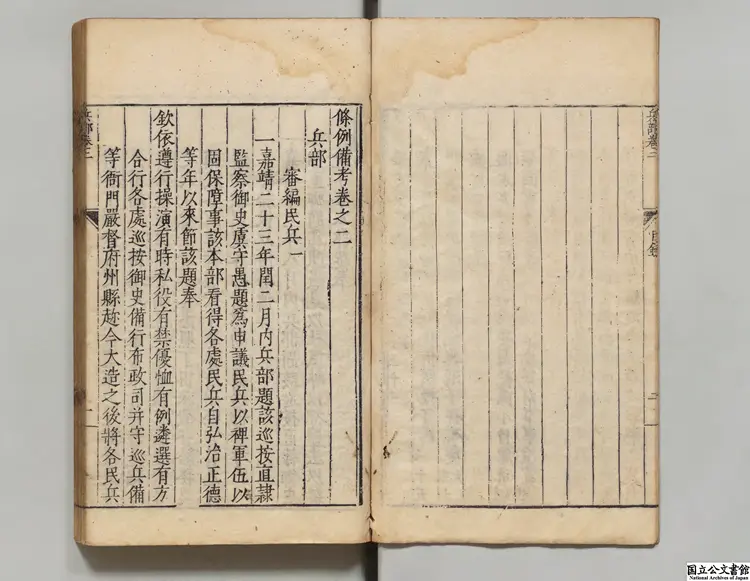 條例備考卷之二
兵部
審編民兵一
一嘉靖二十三年閏二月內兵部題該巡按直隸
監察御史虞守愚題為申議民兵以裨軍伍以
固保障事該本部看得各處民兵自弘治正德
等年以來節該題奉
欽依遵行操演有時私役有禁優恤有例遴選有方
合行各處巡按御史備行布政司并守巡兵備
等衙門嚴督府州縣趂今大造之後將各民兵
兵部卷二
一
兵部卷二
目錄
二
国立公文書館
National Archives of Japan